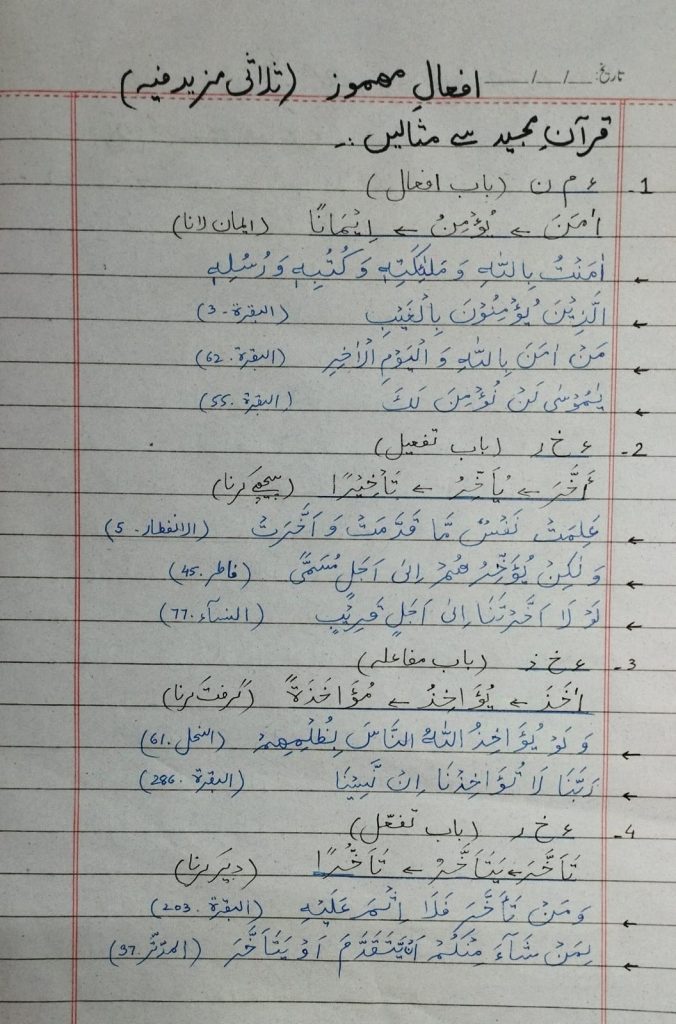 تاریخ: __/__/__
افعالِ مہموز (ثلاثی مزید فیہ)
قرآنِ مجید سے مثالیں :-
1- ء م ن (باب افعال)
اٰمَنَ ← یُؤْمِنُ ← اِیْمَانًا (ایمان لانا)
← اٰمَنْتُ بِاللّٰهِ وَ مَلٰٓئِکَتِهٖ وَ کُتُبِهٖ وَ رُسُلِهٖ
← الَّذِیْنَ یُؤْمِنُوْنَ بِالْغَیْبِ (البقرۃ - 3)
← مَنْ اٰمَنَ بِاللّٰهِ وَ الْیَوْمِ الْاٰخِرِ (البقرۃ . 62)
← یٰمُوْسٰی لَنْ نُّؤْمِنَ لَکَ (البقرۃ . 55)
2- ء خ ر (باب تفعیل)
أَخَّرَ ← یُأَخِّرُ ← تَأْخِیْرًا (پیچھے کرنا)
← عَلِمَتْ نَفْسٌ مَّا قَدَّمَتْ وَ اَخَّرَتْ (الانفطار . 5)
← وَ لٰکِنْ یُّؤَخِّرُ هُمْ اِلٰی اَجَلٍ مُّسَمًّی (فاطر . 45)
← لَوْ لَا اَخَّرْتَنَا اِلٰی اَجَلٍ قَرِیْبٍ (النسآء . 77)
3- ء خ ذ (باب مفاعلہ)
اٰخَذَ ← یُؤَاخِذُ ← مُؤَاخَذَةً (گرفت کرنا)
← وَ لَوْ یُؤَاخِذُ اللّٰهُ النَّاسَ بِظُلْمِهِمْ (النحل . 61)
← رَبَّنَا لَا تُؤَاخِذْنَا اِنْ نَّسِیْنَا (البقرۃ . 286)
4- ء خ ر (باب تفعّل)
تَاَخَّرَ ← یَتَاَخَّرُ ← تَاَخُّرًا (دیر کرنا)
← وَ مَنْ تَاَخَّرَ فَلَا اِثْمَ عَلَیْهِ (البقرۃ . 203)
← لِمَنْ شَآءَ مِنْکُمْ اَنْ یَّتَقَدَّمَ اَوْ یَتَاَخَّرَ (المدّثّر . 37)